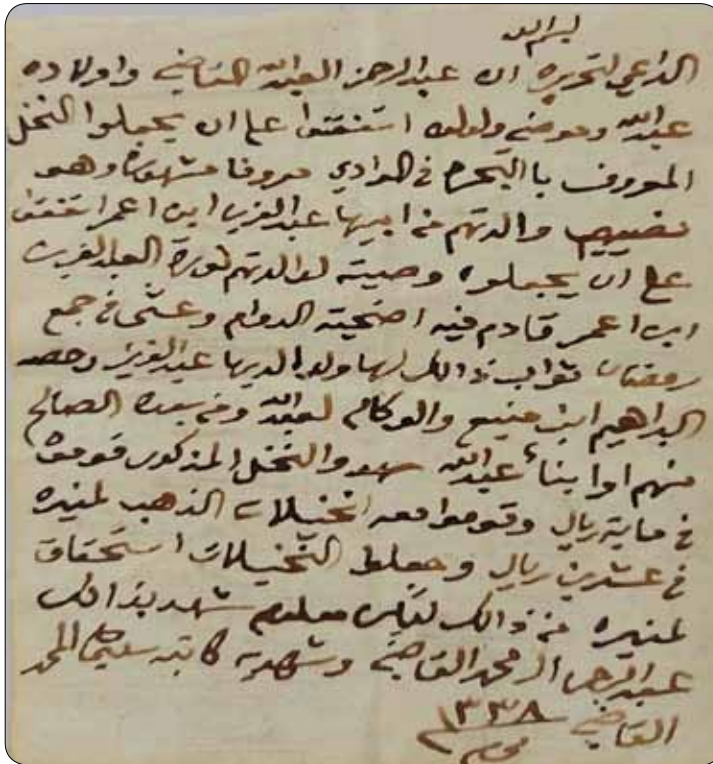 بسم الله
الداعي لتحريره ان عبدالرحمن العبدالله القاضي واولاده
عبدالله وموضي ولولوه اتفقوا على ان يجعلوا النخل
المعروف با في الوادي معروفا مشهورة وهو
نصيبهم والدتهم من ابيها عبدالعزيز ابن اعمر اتفقوا
على ان يجعلوه وصيته لوالدتهم نورة العبدالعزيز
ابن اعمر قادم فيه اضحيته الدوام وعشى في جمع
رمضان ثواب ذالك لها ولوالديها عبدالعزيز وحصه
البراهيم ابن منيع والوكام لعبدالله ومن بعده الصالح
منهم اوابناء عبدالله والنخل المذكور قوموه
في ماية ريال وقوموا معه انخيلات الذهب لمنيره
في عشرين ريال وجعلوا النخيلات استحقاق
لمنيره من ذالك معلوم شهد بذالك
عبدالرحمن المحمد القاضي وشهد به كاتبه سليمان المحمد
القاضي ١٣٣٨
محرم